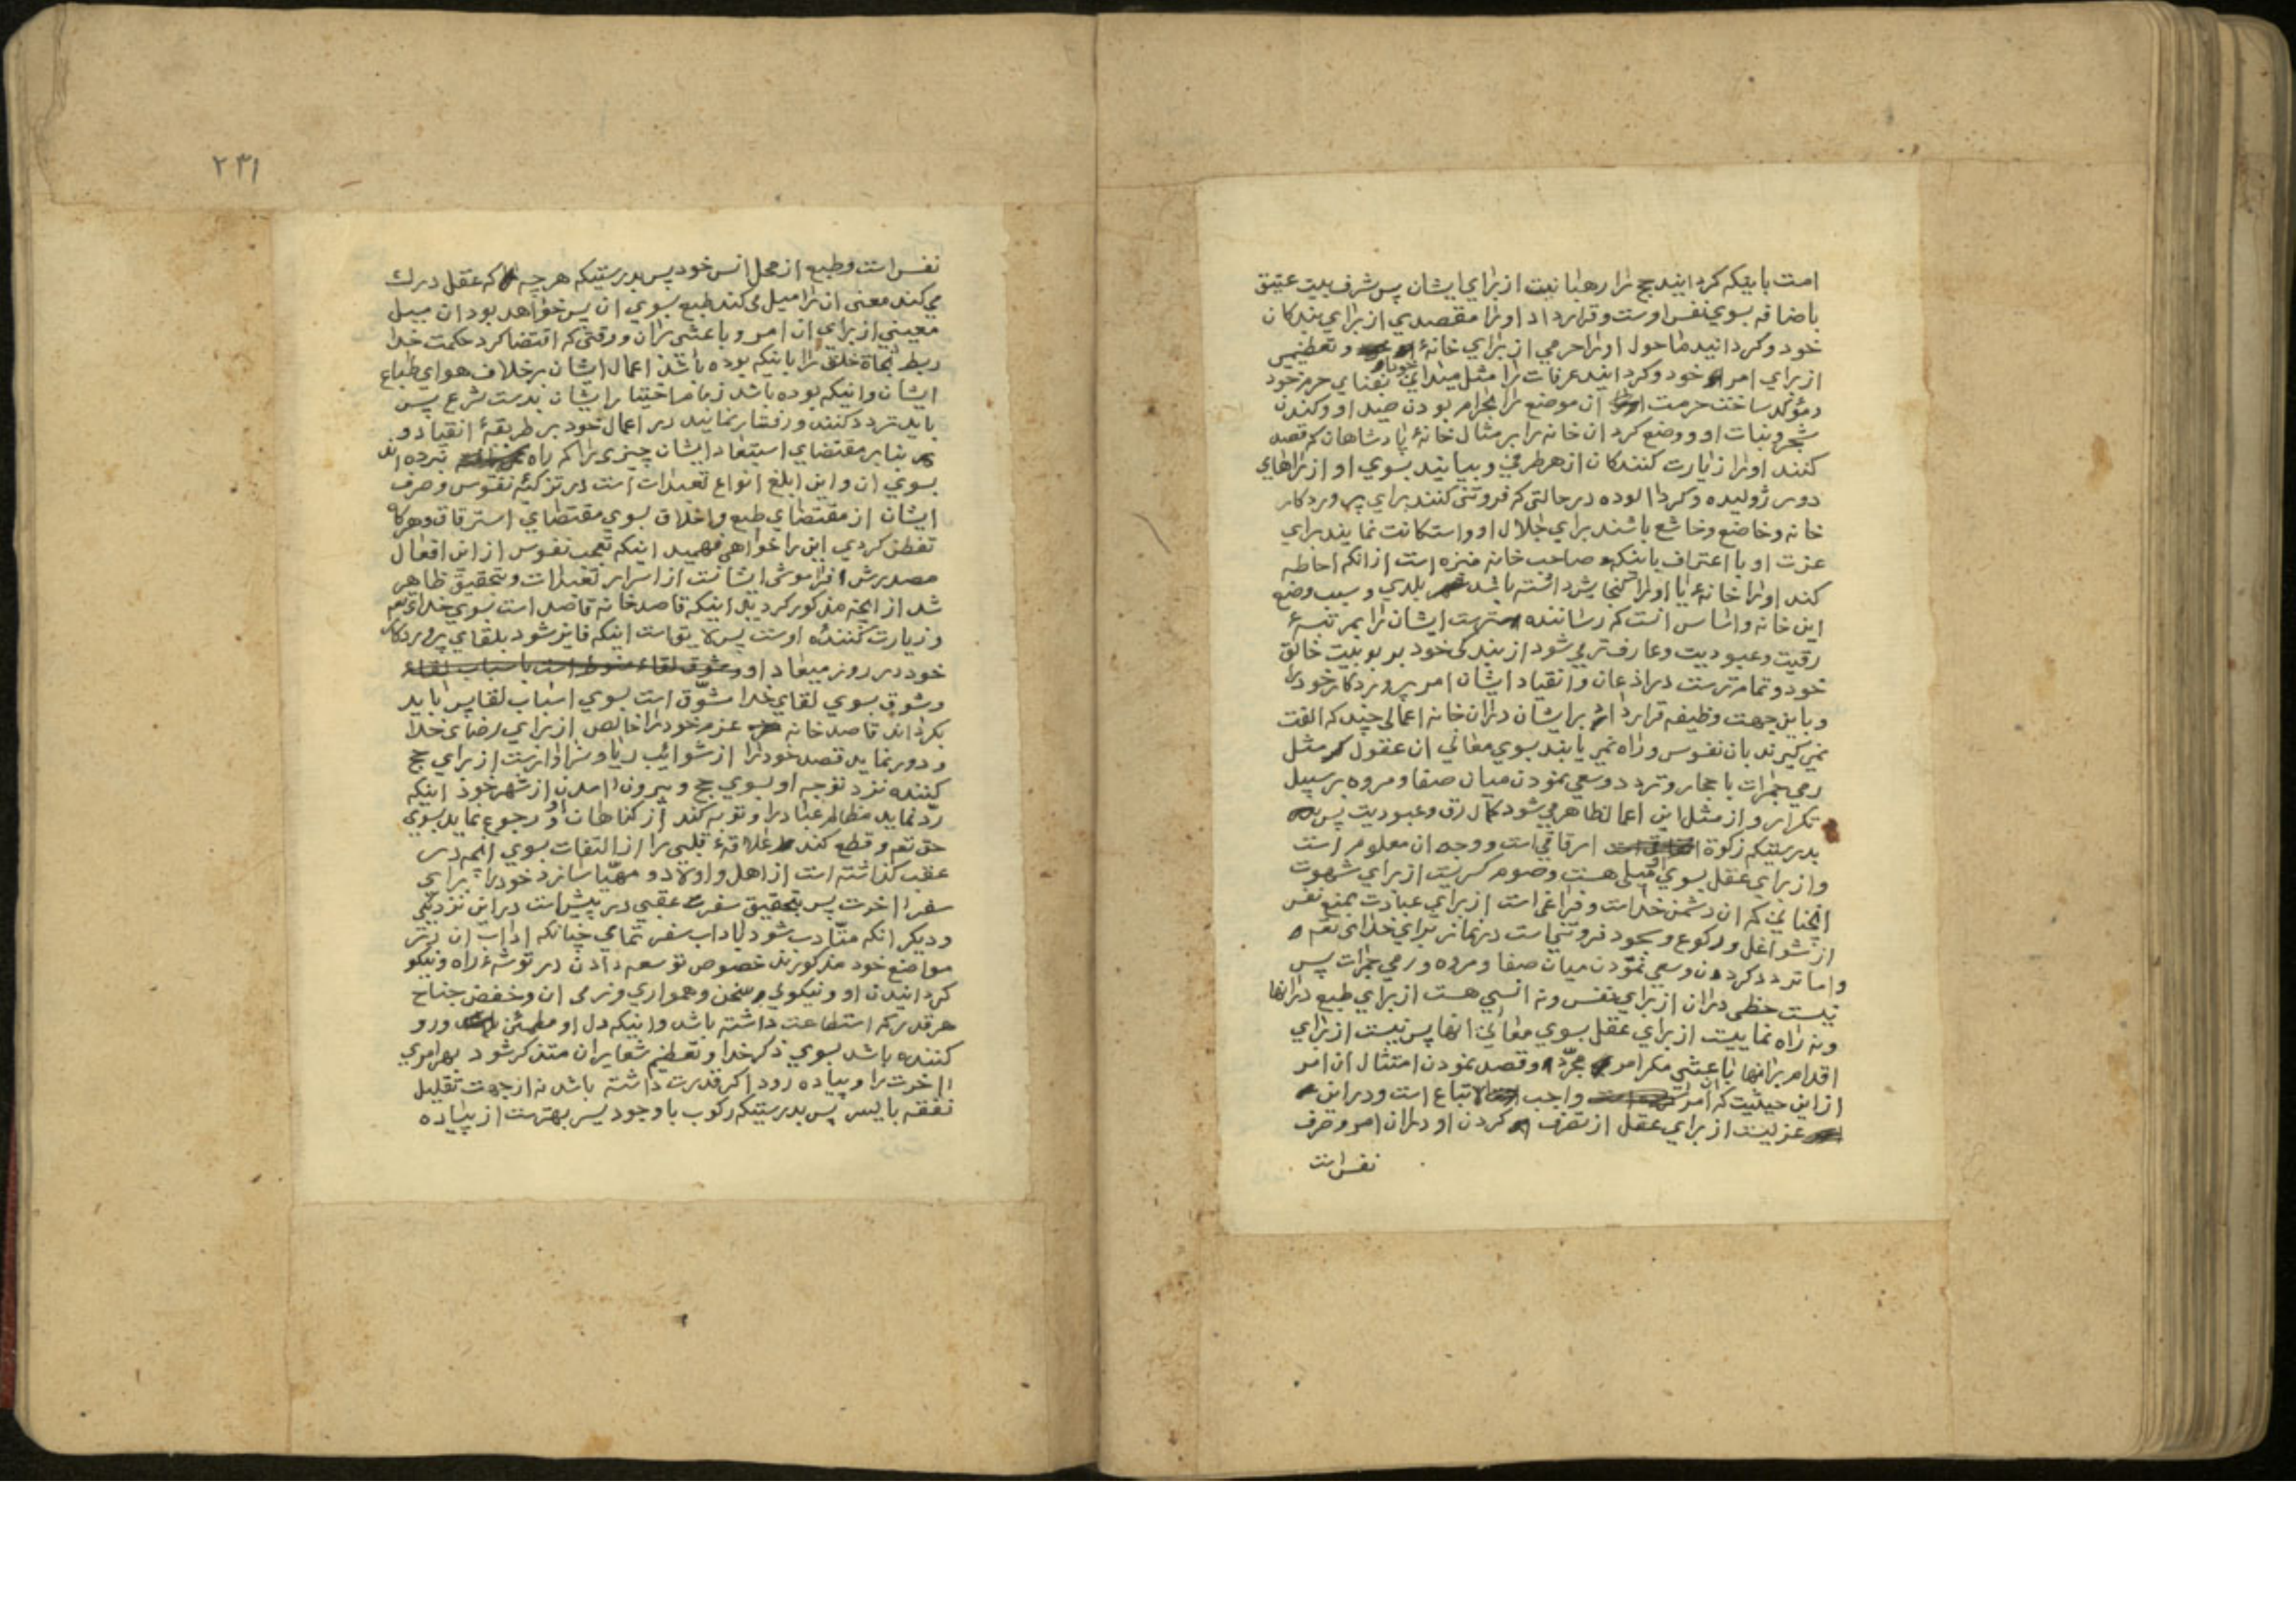 امت باینکه کردانید حج را رهبانیت از برای ایشان پس شرف بیت عتیق
باضافه بسوی نفس اوست و قرار داد اورا مقصدی از برای بندکان
خود و کردانید ما حول اورا حرمی از برای خانهٔ خود و تعظیمی
از برای امر خود و کردانید عرفات را مثل میدانی بفنای حرم خود
و مؤکد ساخت حرمت آن موضع را بحرام بودن صید او و کندن
شجر و نبات او و وضع کرد ان خانه را بر مثال خانهٔ پادشاهان که قصد
کنند اورا زیارت کنندکان از هر طرفی و بیایند بسوی او از راهای
دور ژولیده و کرد الوده در حالتی که فروتنی کنند برای پروردکار
خانه و خاضع و خاشع باشند برای جلال او و استکانت نمایند برای
عزت او با اعتراف باینکه صاحب خانه منزه است از انکه احاطه
کند اورا خانهٔ یا اورا کنجایش داشته باشد بلدی و سبب وضع
این خانه و اساس انست که رساننده ترست ایشان را بمرتبهٔ
رقیت و عبودیت و عارف تر می شود از بندکی خود بربوبیت خالق
خود و تمام ترست در اذعان و انقیاد ایشان امر پروردکار خود را
و باین جهت وظیفه قرار داد بر ایشان دران خانه اعمالی چند که الفت
نمی کیرند بان نفوس و راه نمی یابند بسوی معانی ان عقول مثل
رمی جمرات باحجار و تردد و سعی نمودن میان صفا و مروه بر سبیل
تکرار و از مثل این اعمال ظاهر می شود کمال رق و عبودیت پس
بدرستیکه زکوة ارفاقی است و وجه ان معلوم است
و از برای عقل بسوی او میلی هست و صوم کسریست از برای شهوت
انچنانی که ان دشمن خداست و فراغی است از برای عبادت بمنع نفس
از شواغل و رکوع و سجود فروتنی است در نماز برای خدای تعم
و اما تردد کردن و سعی نمودن میان صفا و مروه و رمی جمرات پس
نیست حظی دران از برای نفس و نه انسی هست از برای طبع درانها
و نه راه نماییست از برای عقل بسوی معانی انها پس نیست از برای
اقدام برانها باعثی مکر امر مجرّد و قصد نمودن امتثال ان امر
از این حیثیت که ان امر واجب الاتباع است و در این
عزلیست از برای عقل از تصرف کردن او دران امر و صرف
نفس است
۲۳۱
نفس است و طبع از محل انس خود پس بدرستیکه هر چه که عقل درک
می کند معنی ان را میل می کند طبع بسوی ان پس خواهد بود ان میل
معینی از برای ان امر و باعثی بران و وقتی که اقتضا کرد حکمت خدا
ربط نجاة خلق را باینکه بوده باشد اعمال ایشان بر خلاف هوای طباع
ایشان و اینکه بوده باشد زمام اختیار ایشان بدست شرع پس
باید تردد کنند و رفتار نمایند در اعمال خود بر طریقهٔ انقیاد و
بنابر مقتضای استبعاد ایشان چیزی را که راه نبرده اند
بسوی ان و این ابلغ انواع تعبدات است در تزکیهٔ نفوس و صرف
ایشان از مقتضای طبع و اخلاق بسوی مقتضای استرقاق و هرکاه
تفطن کردی این را خواهی فهمید اینکه تعجب نفوس از این افعال
مصدرش فراموشی ایشانست از اسرار تعبدات و بتحقیق ظاهر
شد از انچه مذکور کردید اینکه قاصد خانه قاصد است بسوی خدای تعم
و زیارت کنندهٔ اوست پس لایق است اینکه فایز شود بلقای پروردکار
خود در روز میعاد او و شوق لقاء منوط است باسباب لقاء
و شوق بسوی لقای خدا مشوّق است بسوی اسباب لقا پس باید
بکرداند قاصد خانه عزم خود را خالص از برای رضای خدا
و دور نماید قصد خود را از شوائب ریا و سزاوارست از برای حج
کننده نزد توجه او بسوی حج و بیرون امدن از شهر خود اینکه
ردّ نماید مظالم عباد را و توبه کند از کناهان او و رجوع نماید بسوی
حق تعم و قطع کند علاقهٔ قلبی را از التفات بسوی انچه در
عقب کذاشته است از اهل و اولاد و مهیّا سازد خود را برای
سفر اخرت پس بتحقیق سفر عقبی در پیش است در این نزدیکی
و دیکر انکه متأدب شود باداب سفر تمامی چنانکه اداب ان در
مواضع خود مذکورند خصوص توسعه دادن در توشهٔ راه و نیکو
کردانیدن او و نیکوئی سخن و همواری و نرمی ان و خفض جناح
هر قدر که استطاعت داشته باشد و اینکه دل او مطمئن و رو
کننده باشد بسوی ذکر خدا و تعظیم شعایران متذکر شود بهر امری
اخرت را و پیاده رود اکر قدرت داشته باشد نه از جهت تقلیل
نفقه با یسر پس بدرستیکه رکوب با وجود یسر بهترست از پیاده